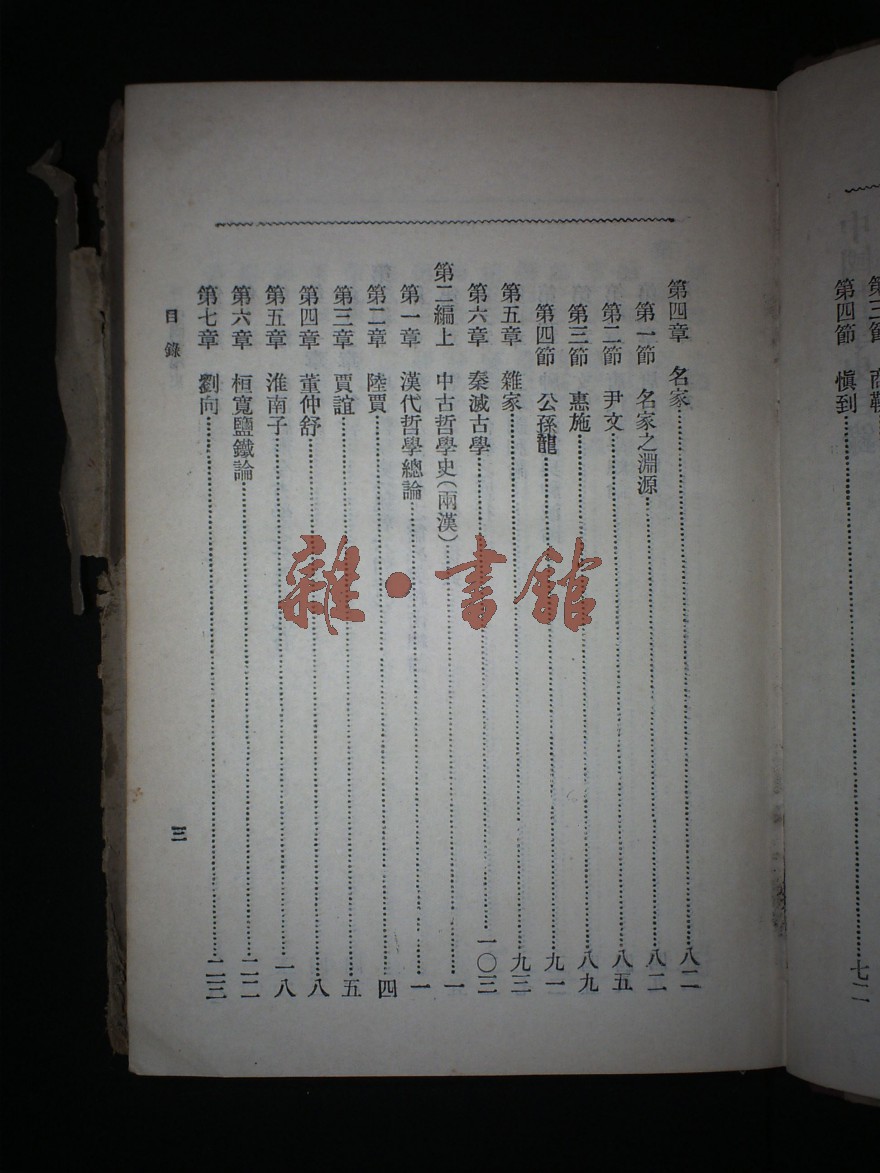 第四節 愼到……七二
第四章 名家……八二
第一節 名家之淵源……八二
第二節 尹文……八五
第三節 惠施……八九
第四節 公孫龍……九一
第五章 雜家……九三
第六章 秦滅古學……一〇三
第二編上 中古哲學史(兩漢)……一
第一章 漢代哲學總論……一
第二章 陸賈……四
第三章 賈誼……五
第四章 董仲舒……八
第五章 淮南子……一八
第六章 桓寬鹽鐵論……二二
第七章 劉向……二三
目錄 三
雜·書館